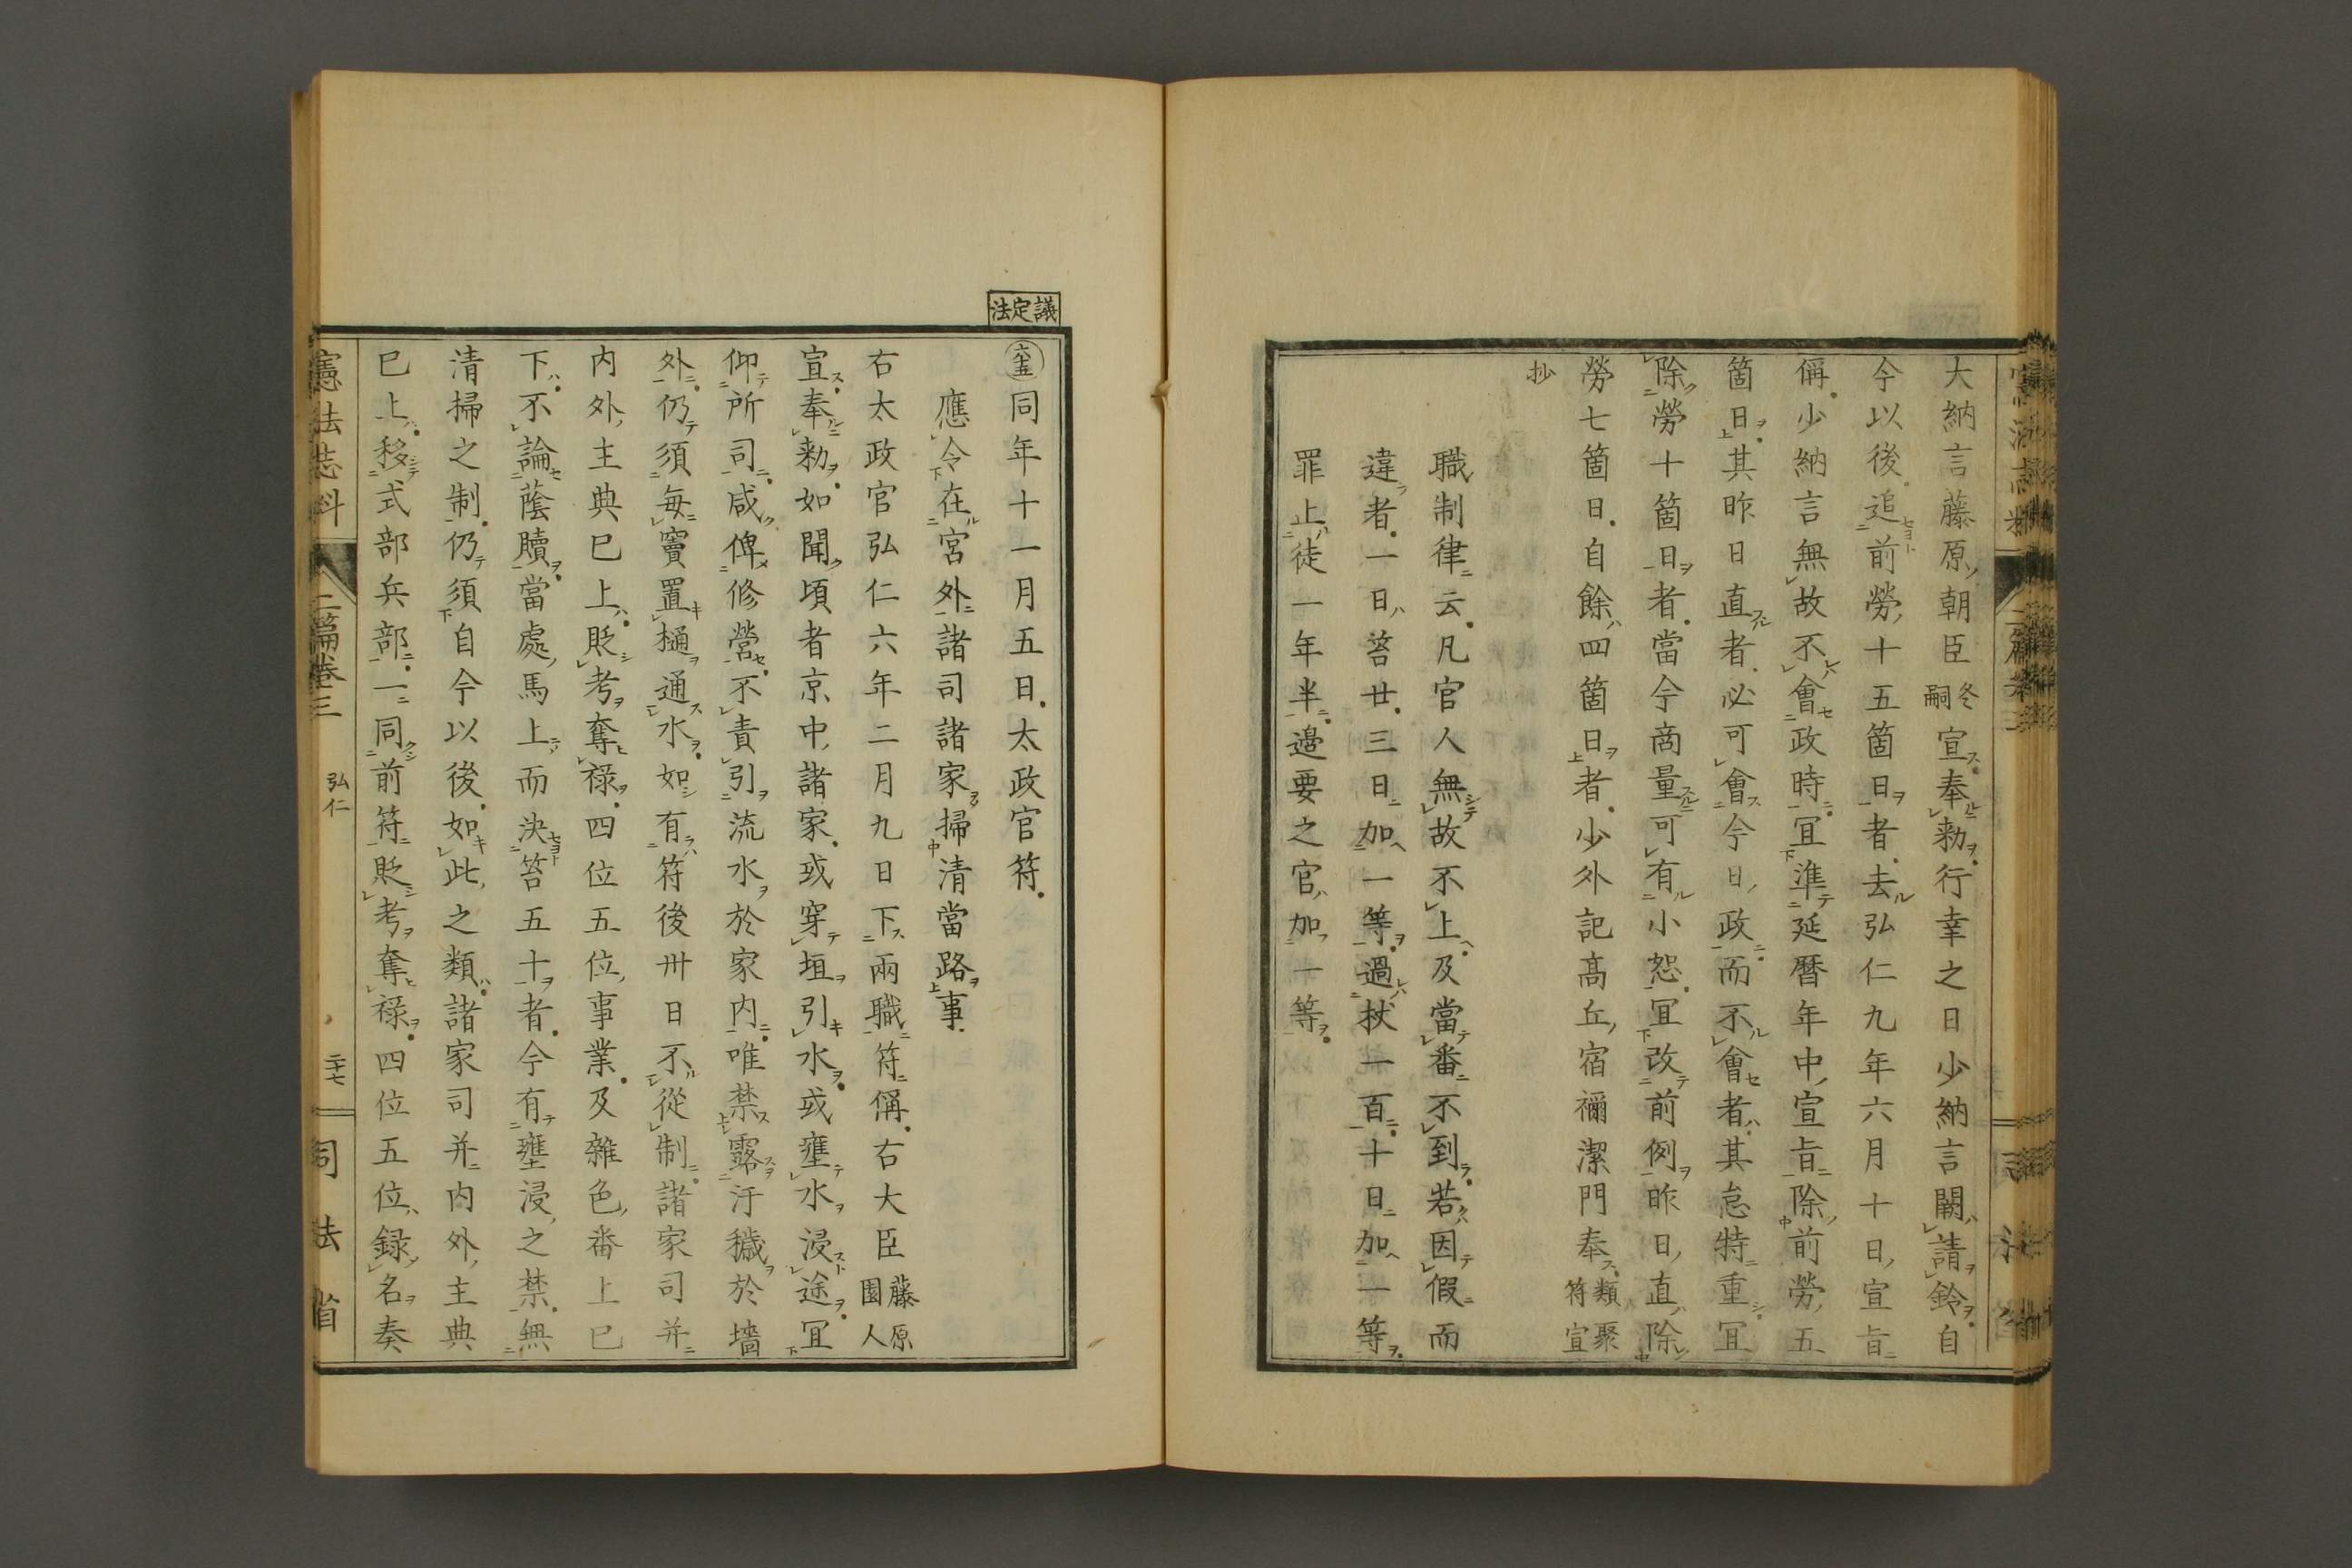 大納言藤原朝臣冬嗣宣奉勅行幸之日少納言闕請鈴自
今以後追前勞十五箇日者去弘仁九年六月十日宣旨
偁少納言無故不會政時宜準延暦年中宣旨除前勞五
箇日其昨日直者必可會今日政而不會者其怠特重宜
除勞十箇日者當今商量可有小恕宜改前例昨日直除
勞七箇日自餘四箇日者少外記髙丘宿禰潔門奉類聚符宣
抄
職制律云凡官人無故不上及當番不到若因假而
違者一日笞廿三日加一等過杖一百十日加一等
罪止徒一年半邉要之官加一等
議定法
同年十一月五日太政官符
應令在宮外諸司諸家掃清當路事
右太政官弘仁六年二月九日下兩職符偁右大臣藤原園人
宣奉勅如聞頃者京中諸家或穿垣引水或壅水浸途宜
仰所司咸俾修營不責引流水於家内唯禁露汙穢於墻
外仍須毎竇置樋通水如有符後卅日不從制諸家司并
内外主典已上貶考奪禄四位五位事業及雜色番上已
下不論蔭贖當處馬上而決笞五十者今有壅浸之禁無
清掃之制仍須自今以後如此之類諸家司并内外主典
已上移式部兵部一同前符貶考奪禄四位五位録名奏
憲法志料 二篇卷三 弘仁 二十七 司法省